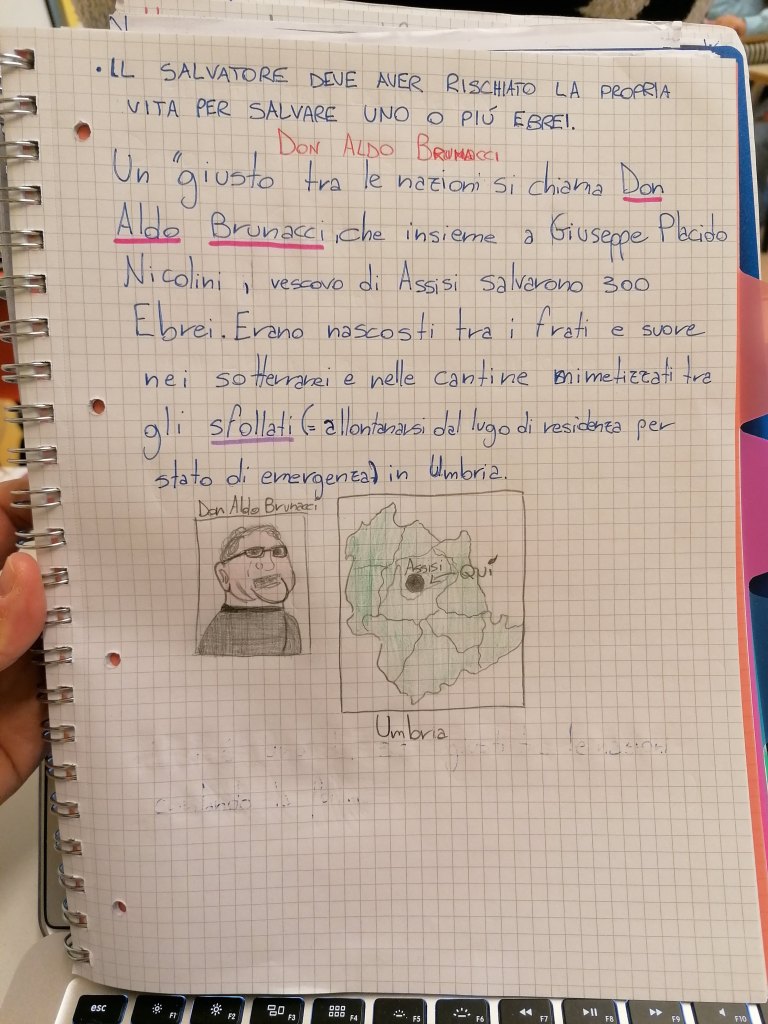 • IL SALVATORE DEVE AVER RISCHIATO LA PROPRIA
VITA PER SALVARE UNO O PIÚ EBREI.
DON ALDO BRUNACCI
Un "giusto tra le nazioni si chiama Don
Aldo Brunacci, che insieme a Giuseppe Placido
Nicolini, vescovo di Assisi salvarono 300
Ebrei. Erano nascosti tra i frati e suore
nei sotterranei e nelle cantine mimetizzati tra
gli sfollati (= allontanarsi dal lugo di residenza per
stato di emergenza) in Umbria.
Don Aldo Brunacci
Assisi
QUÍ
Umbria
esc F1 F2 F3 F4 F5 F6 F7 F8 F9 F10